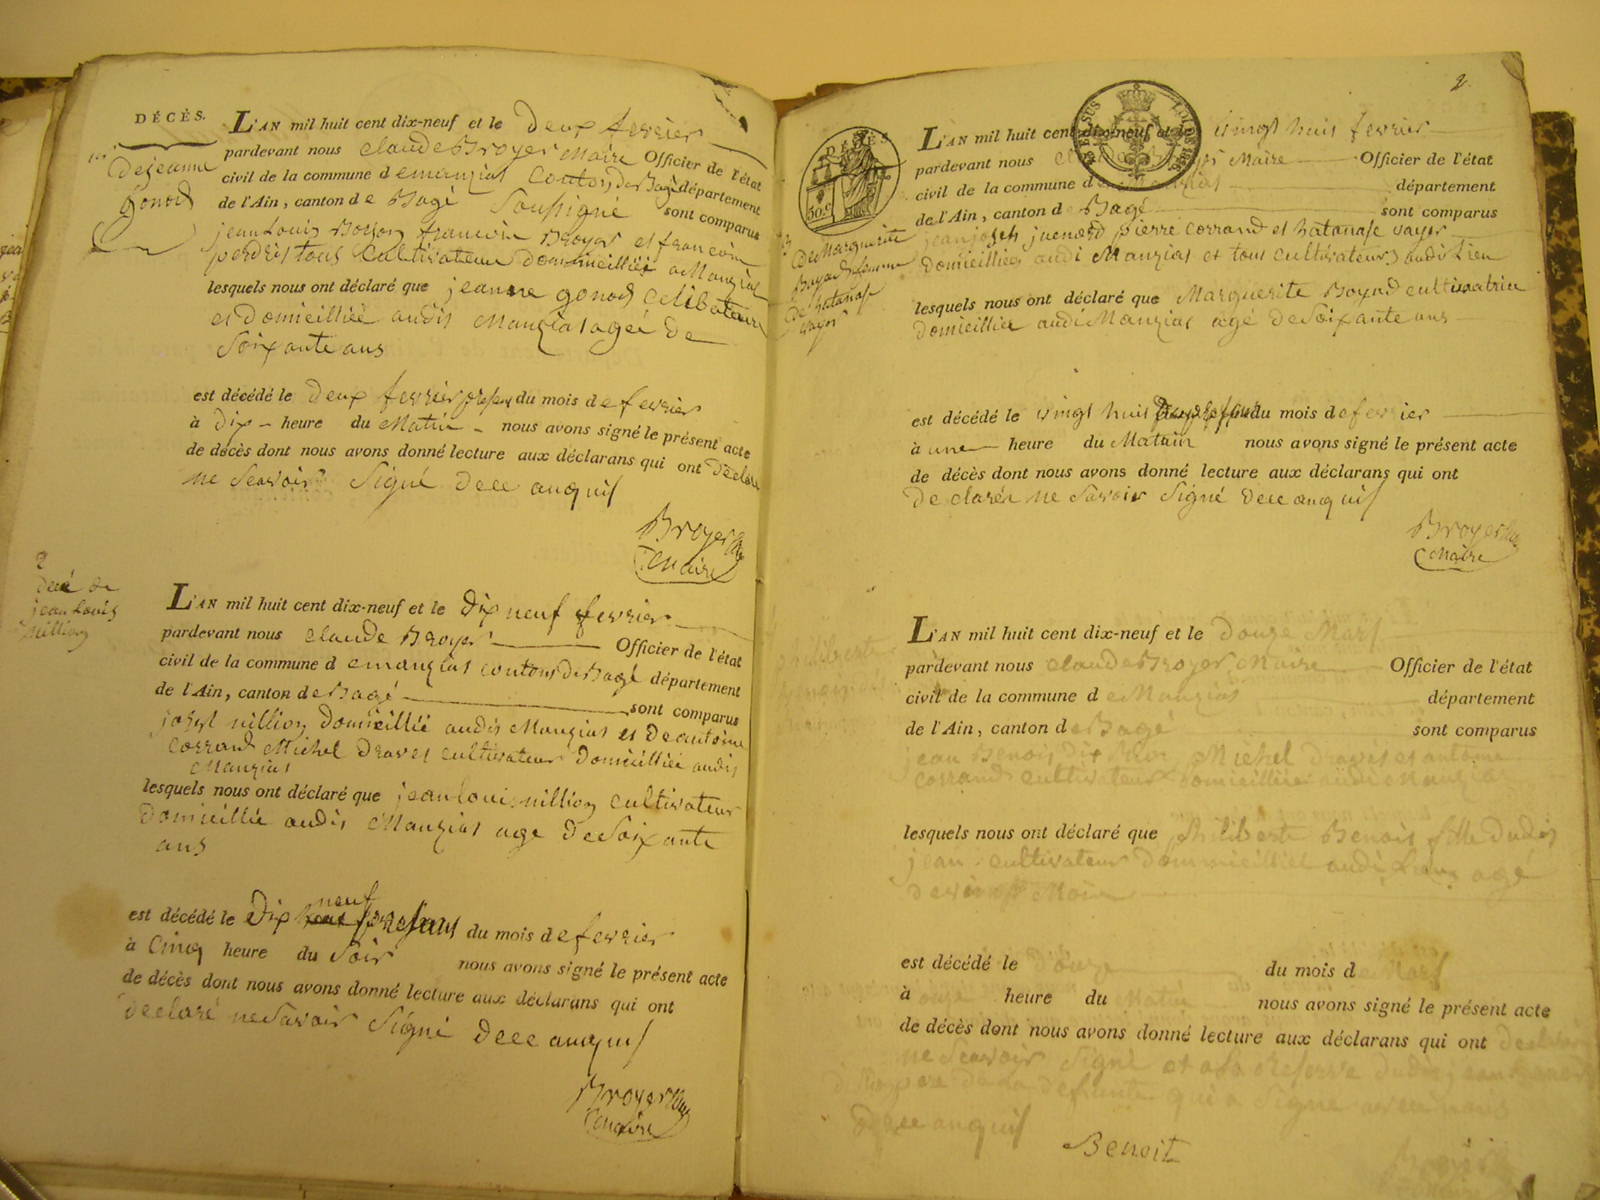 DÉCÈS.
L'AN mil huit cent dix-neuf et le Deux fevrier
pardevant nous Claude Broyer Maire Officier de l'état
civil de la commune d emanzias conton de Bagé département
de l'Ain, canton de Bagé Soussigné sont comparus
jean Louis Boyon francois Broyer et francois
perdrit tous Cultivateur dommicillié a Manzias
lesquels nous ont déclaré que jeanne gonod Celibataire
et Domicillié audit Manzias agée de
Soixante ans
est décédé le Deux fevrier present du mois de fevrier
à Dix heure du Matin nous avons signé le présent acte
de décès dont nous avons donné lecture aux déclarans qui ont Declaré
ne Scavoir Signé Dece anquis
Broyer
Maire
De jeanne
gonod
2
Decé de
jean Louis
nillion
L'AN mil huit cent dix-neuf et le Dix neuf fevrier
pardevant nous Claude Broyer Officier de l'état
civil de la commune d emanzias conton de Bagé département
de l'Ain, canton de Bagé sont comparus
joseph nillion Domicillié audit Manzias et De antoine
Corrand Michel Dravet cultivateur Domicillié audit
Manzias
lesquels nous ont déclaré que jean Loui nillion cultivateur
Domicillié audit Manzias age De Soixante
ans
neuf
est décédé le Dix present du mois de fevrier
à Cinq heure du Soir nous avons signé le présent acte
de décès dont nous avons donné lecture aux déclarans qui ont
Declaré ne Savoir Signé Dece anquis
Broyer
Maire
2
DÉCÈS
50 c
L'AN mil huit cent dix-neuf et le vingt huit fevrier
pardevant nous Maire Officier de l'état
civil de la commune d département
de l'Ain, canton de Bagé sont comparus
jean joseph juenard pierre corrand et hatanase vayer
Domicillié audi Manzias et tous cultivateurs audi Lieu
De Marguerite
Bayard femme
De hatanase
vayer
lesquels nous ont déclaré que Marguerite Boyad cultivatrice
Domicillié audi Manzias agé de Soixante ans
est décédé le vingt huit du mois de fevrier
à une heure du Matin nous avons signé le présent acte
de décès dont nous avons donné lecture aux déclarans qui ont
Declaré ne Savoir Signé Dece anquis
Broyer
Maire
L'AN mil huit cent dix-neuf et le Douze Mars
pardevant nous Claude Broyer Maire Officier de l'état
civil de la commune d e Manzias département
de l'Ain, canton de Bagé sont comparus
Benoit Michel Dravet et antoine
Corrand cultivateur Domicillié audi Manzias
lesquels nous ont déclaré que philiberte Benoit fille Dudit
jean cultivateur Dommicillié audi Lieux agé
De Mois
est décédé le Douze du mois de Mars
à onze heure du Matin nous avons signé le présent acte
de décès dont nous avons donné lecture aux déclarans qui ont Declaré
ne Scavoir Signé et a la Reserve Dudit jean Benoit
pere De la Defunte qui a Signé avec nous
Dece anquis
Benoit
Broyer